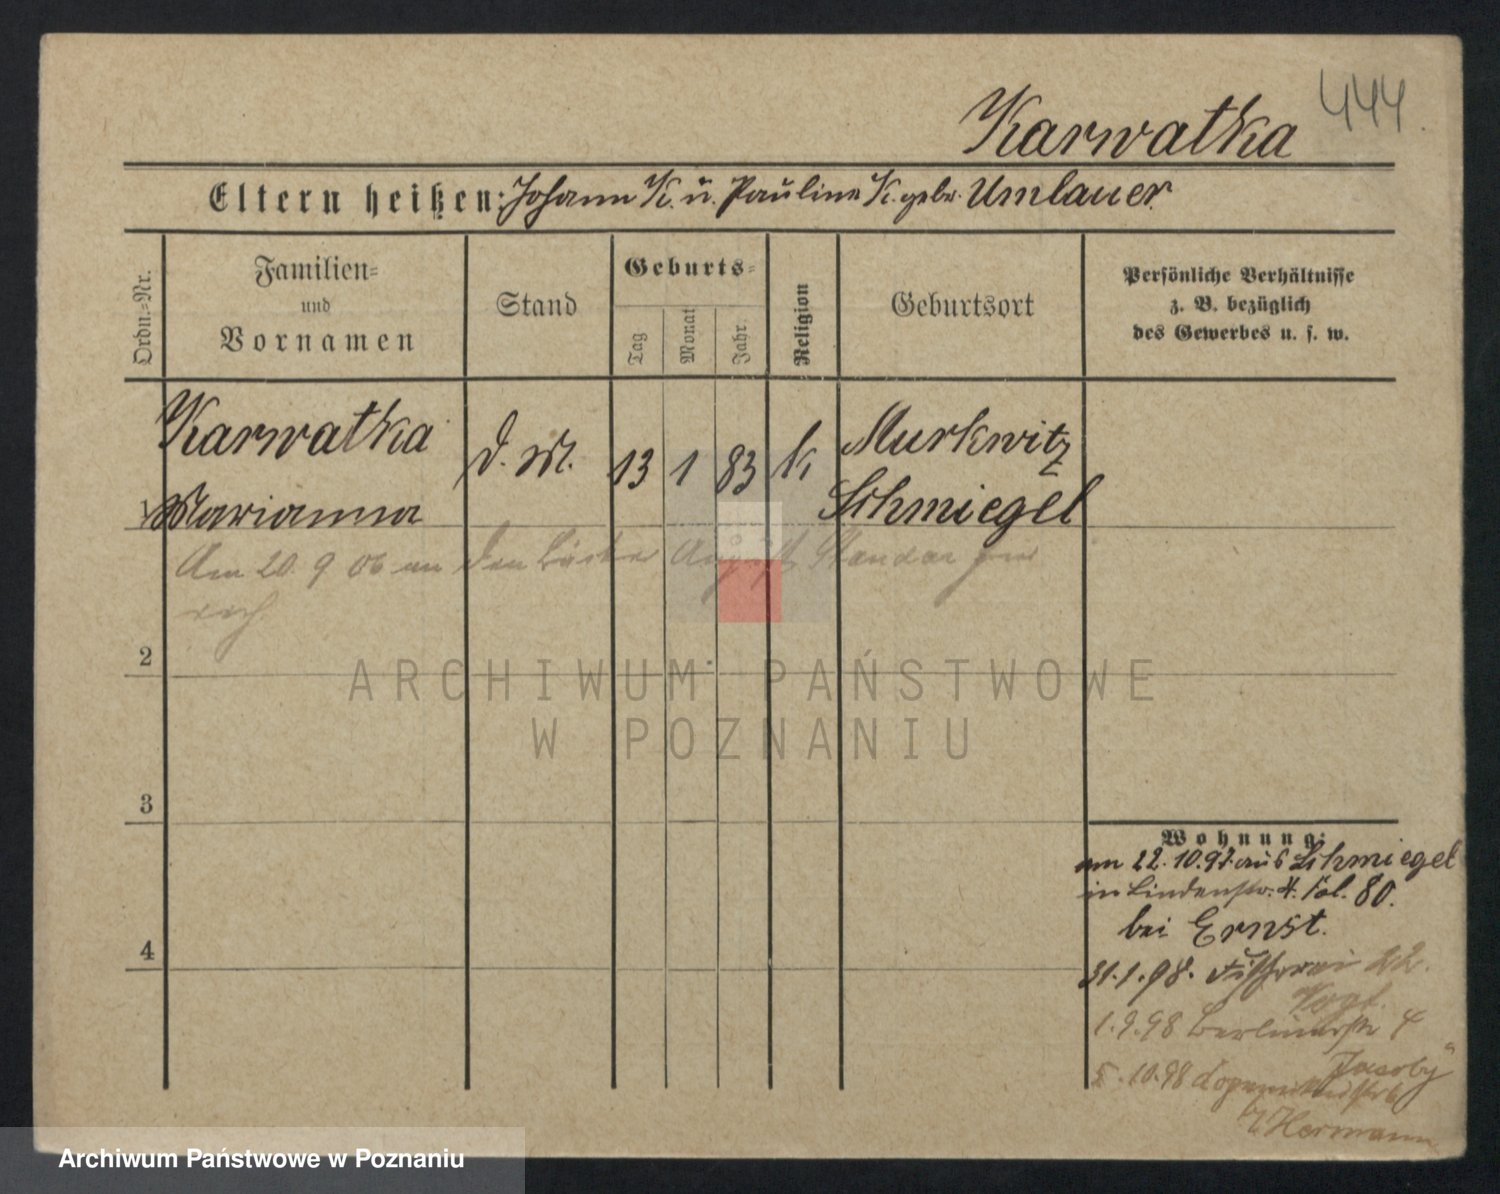 Karwatka 444.
Eltern heißen: Johann K. u. Pauline K. gebr. Umlauer
Ordn.=Nr.
Familien=
und
Vornamen
Stand
Geburts=
Tag
Monat
Jahr
Religion
Geburtsort
Persönliche Verhältnisse
z. B. bezüglich
des Gewerbes u. s. w.
Karwatka
Marianna
d. M.
13 1 83 k
Murkwitz
Schmiegel
Am 20. 9 06 an den Bäcker August
2
3
4
ARCHIWUM PAŃSTWOWE
W POZNANIU
Wohnung:
am 22.10.97. aus Schmiegel
in Lindenstr. 4. Pol. 80.
bei Ernst.
31.1.98. Fischerei 22.
Vogt.
1.9.98 Berlinerstr 4
Jacoby
5.10.98
Hermann
Archiwum Państwowe w Poznaniu